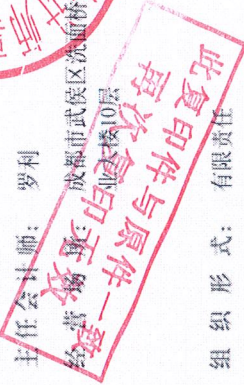 主任会计师： 罗利
经营场所： 成都市武侯区洗面桥
10层
组织形式： 有限责任
此复印件与原件一致
再次复印无效